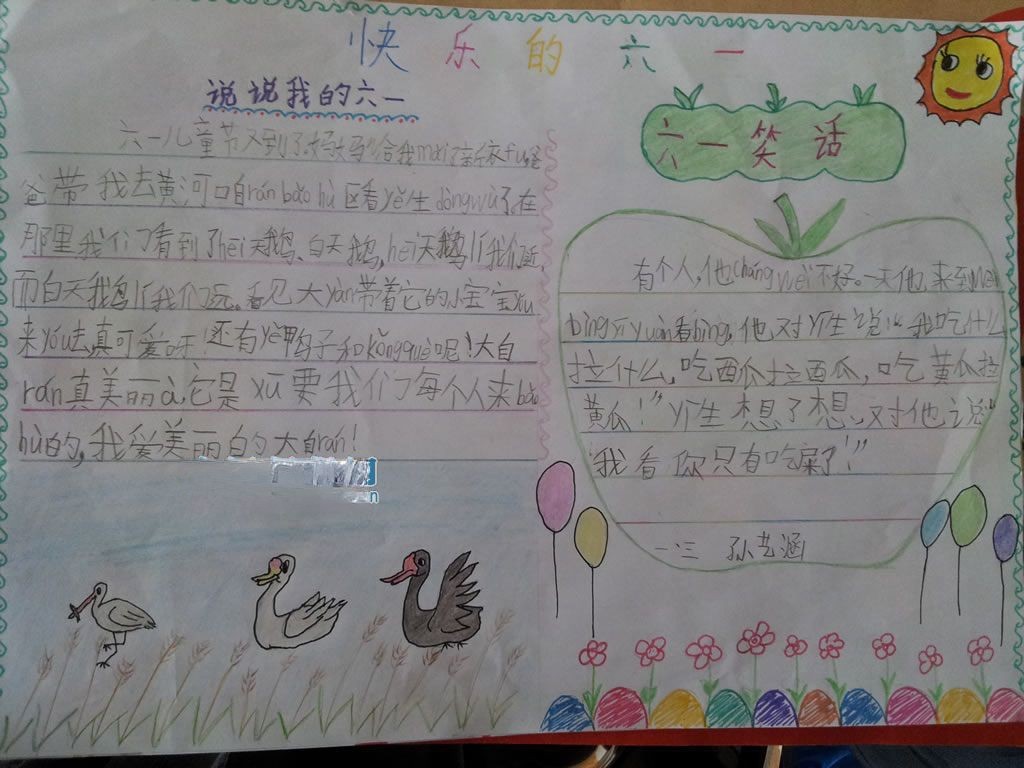 快乐的六一
说说我的六一
六一儿童节又到了妈妈给我mǎi 衣fu爸
爸带我去黄河口自rán bǎo hù区看yě生dòngwù了,在
那里我们看到了hēi天鹅、白天鹅,hēi天鹅lí我们近
而白天鹅lí我们远。看见大yàn带着它的小宝宝
来yóu去真可爱呀!还有yě鸭子和kǒngquè呢!大自
rán真美丽à,它是xū要我们每个人来bǎo
hù的,我爱美丽的大自rán!
六一笑话
有个人,他cháng wèi不好。一天他,来到
bìng yuàn看bìng,他对yī生说:"我吃什么
拉什么,吃西瓜拉西瓜,吃黄瓜拉
黄瓜!"yī生想了想,对他说:"
我看你只有吃屎了!"
一.三 孙艺涵